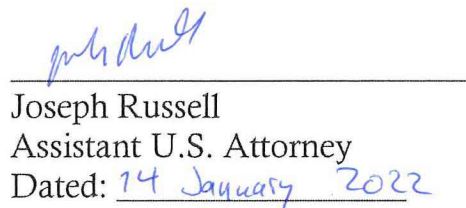 Joseph Russell
Assistant U.S. Attorney
Dated: 14 January 2022